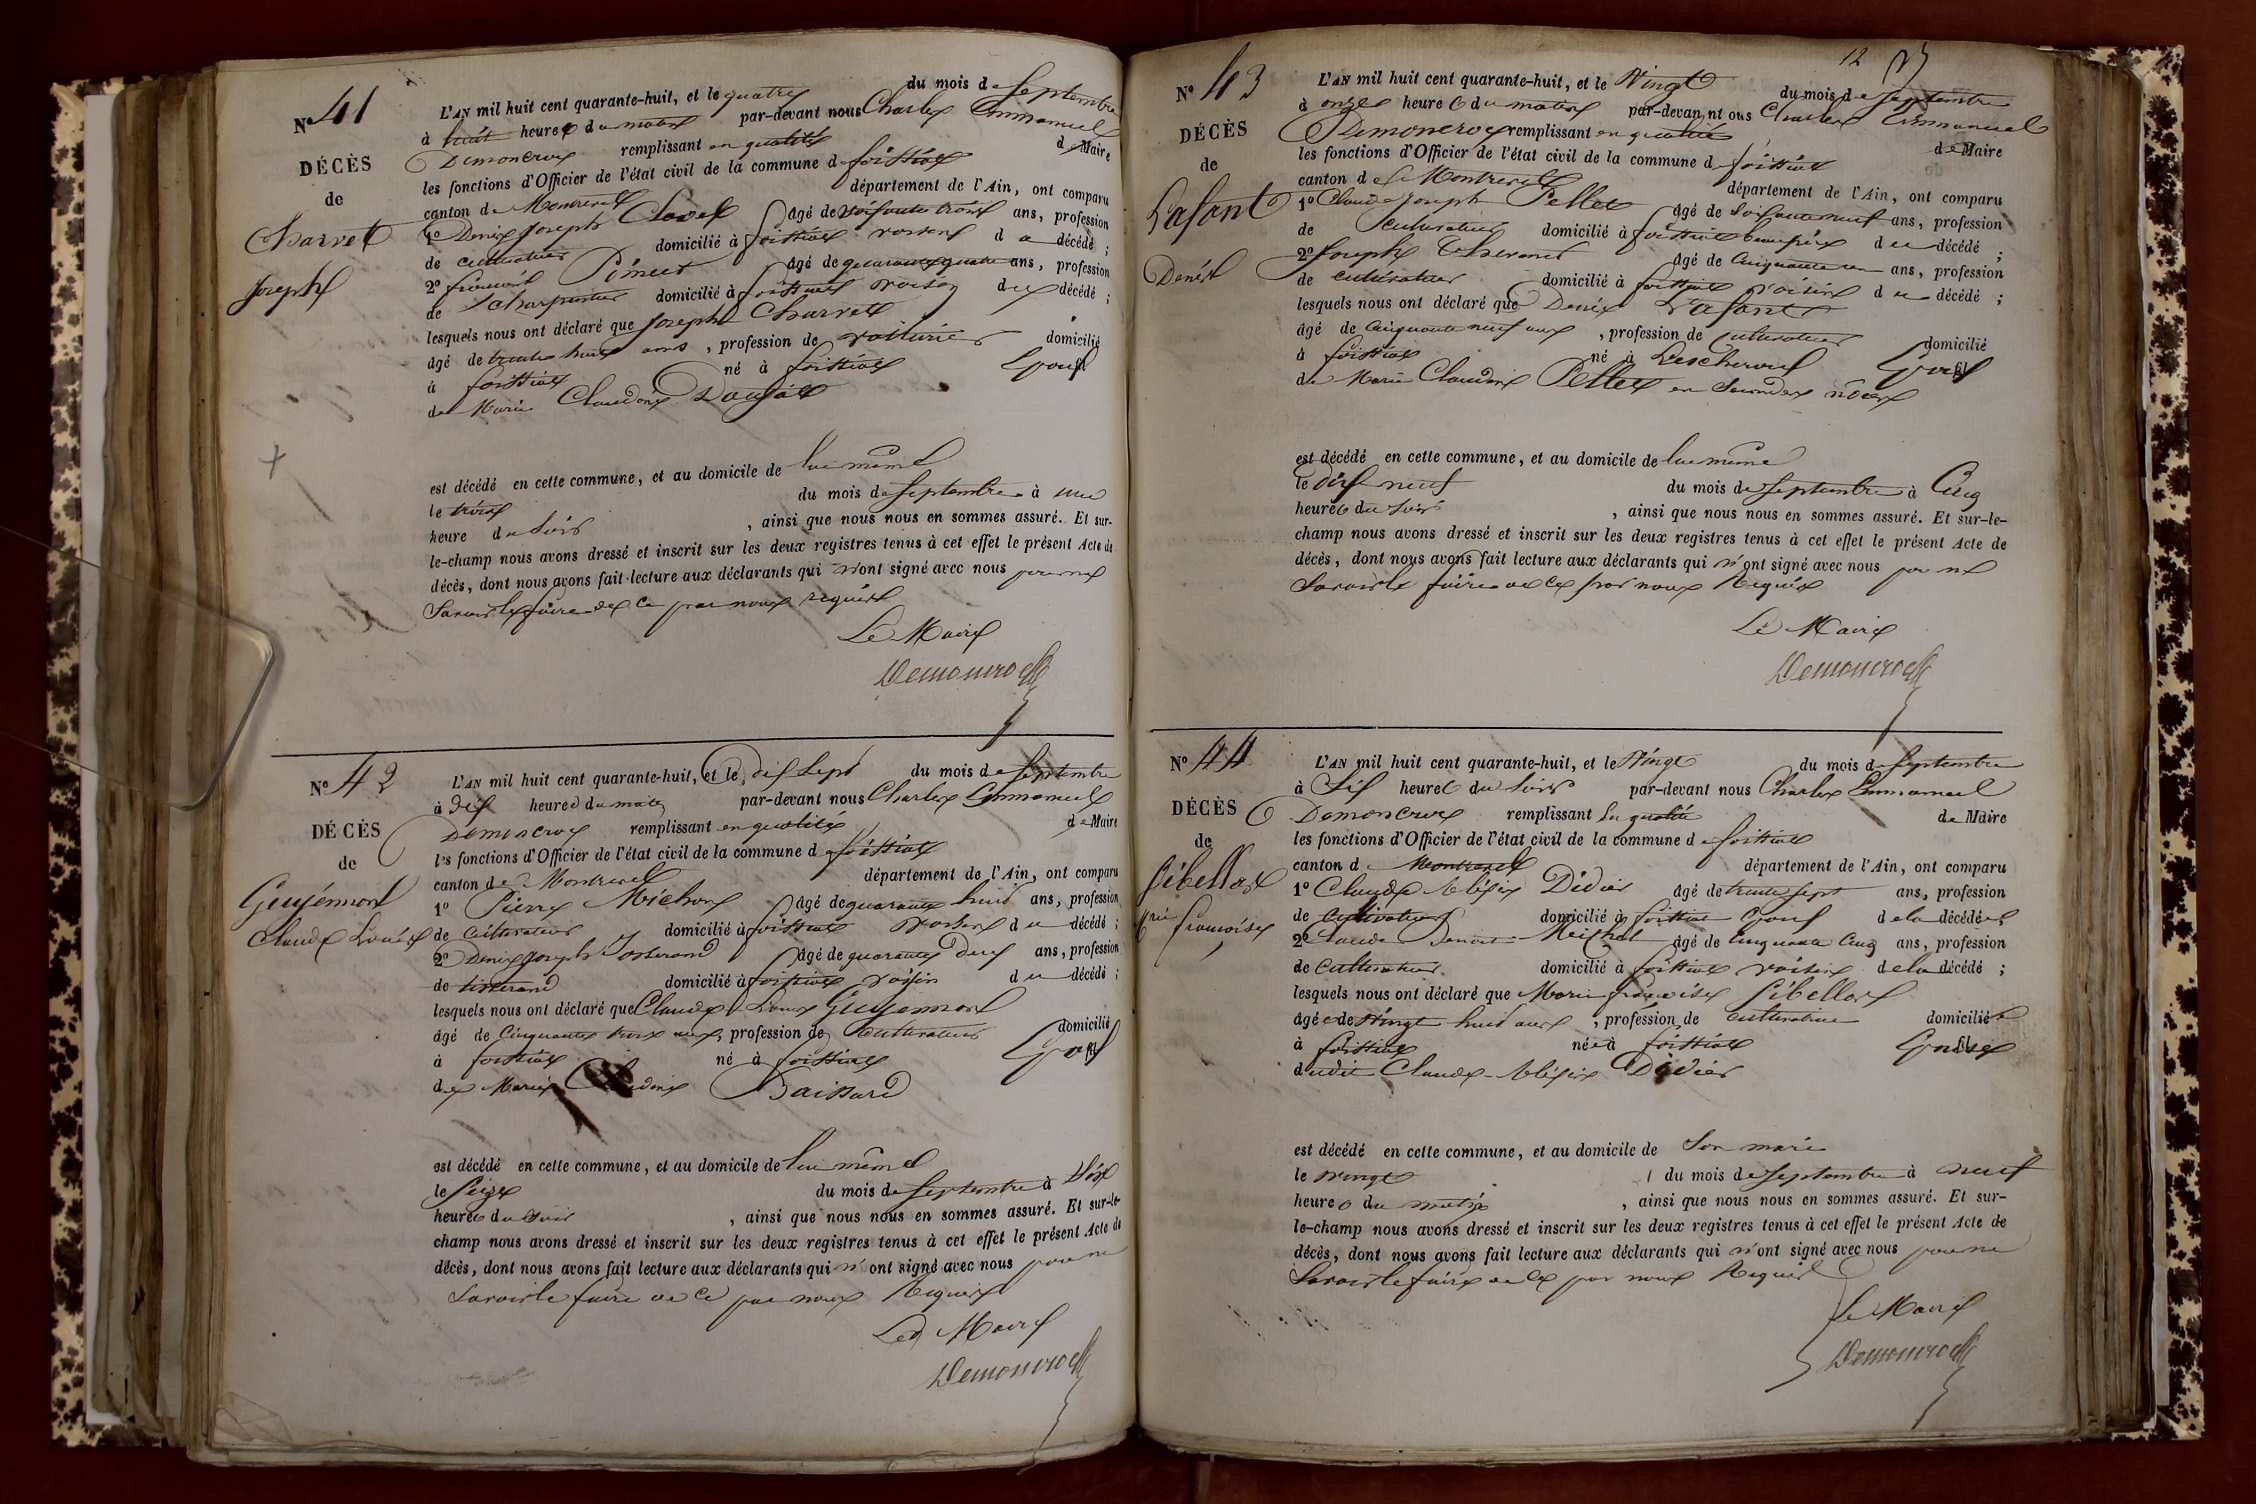 N° 41
DÉCÈS
de
Charvet
Joseph
L'AN mil huit cent quarante-huit, et le quatre du mois de Septembre
à huit heures du matin par-devant nous Charles Emmanuel
Demoncroix remplissant en qualité de Maire
les fonctions d'Officier de l'état civil de la commune de foissiat
canton de Montrevel département de l'Ain, ont comparu
1° Denis Joseph Clavel âgé de soixante trois ans, profession
de cultivateur domicilié à foissiat voisin du décédé ;
2° Pinet âgé de quarante quatre ans, profession
de charpentier domicilié à foissiat voisin du décédé ;
lesquels nous ont déclaré que Joseph Charvet
âgé de trente huit ans, profession de voiturier domicilié
à foissiat né à foissiat Epoux
de Marie Claudine
est décédé en cette commune, et au domicile de lui même
le trois du mois de Septembre à une
heure du Soir, ainsi que nous nous en sommes assuré. Et sur-
le-champ nous avons dressé et inscrit sur les deux registres tenus à cet effet le présent Acte de
décès, dont nous avons fait lecture aux déclarants qui n'ont signé avec nous pour ne
Savoir le faire de ce par nous requis
Le Maire
Demoncroix
N° 42
DÉCÈS
de
Guyénnon
Claude Louis
L'AN mil huit cent quarante-huit, et le dix Sept du mois de Septembre
à dix heures du matin par-devant nous Charles Emmanuel
Demoncroix remplissant en qualité de Maire
les fonctions d'Officier de l'état civil de la commune de foissiat
canton de Montrevel département de l'Ain, ont comparu
1° Pierre Michon âgé de quarante huit ans, profession
de cultivateur domicilié à foissiat voisin du décédé ;
2° Denis Joseph Josserand âgé de quarante deux ans, profession
de tisserand domicilié à foissiat voisin du décédé ;
lesquels nous ont déclaré que Claude Louis Guyennon
âgé de Cinquante trois ans, profession de Cultivateur domicilié
à foissiat né à foissiat Epoux
de Marie Claudine Baissard
est décédé en cette commune, et au domicile de lui même
le Seize du mois de Septembre à Dix
heures du Soir, ainsi que nous nous en sommes assuré. Et sur-le-
champ nous avons dressé et inscrit sur les deux registres tenus à cet effet le présent Acte de
décès, dont nous avons fait lecture aux déclarants qui n'ont signé avec nous pour ne
Savoir le faire de ce par nous Requis
Le Maire
Demoncroix
12
N° 43
DÉCÈS
de
Lafont
Denis
L'AN mil huit cent quarante-huit, et le Vingt du mois de Septembre
à onze heures du matin par-devant nous Charles Emmanuel
Demoncroix remplissant en qualité de Maire
les fonctions d'Officier de l'état civil de la commune de foissiat
canton de Montrevel département de l'Ain, ont comparu
1° Claude Joseph Pellet âgé de Soixante neuf ans, profession
de cultivateur domicilié à foissiat beau frère du décédé ;
2° Joseph Thevenet âgé de Cinquante un ans, profession
de cultivateur domicilié à foissiat voisin du décédé ;
lesquels nous ont déclaré que Denis Lafont
âgé de Cinquante neuf ans, profession de cultivateur domicilié
à foissiat né à Lescheroux Epoux
de Marie Claudine Pellet en Secondes nôces
est décédé en cette commune, et au domicile de lui même
le dix neuf du mois de Septembre à Cinq
heures du Soir, ainsi que nous nous en sommes assuré. Et sur-le-
champ nous avons dressé et inscrit sur les deux registres tenus à cet effet le présent Acte de
décès, dont nous avons fait lecture aux déclarants qui n'ont signé avec nous pour ne
Savoir le faire de ce par nous Requis
Le Maire
Demoncroix
N° 44
DÉCÈS
de
Gibellon
françoise
L'AN mil huit cent quarante-huit, et le Vingt du mois de Septembre
à Six heures du Soir par-devant nous Charles Emmanuel
Demoncroix remplissant En qualité de Maire
les fonctions d'Officier de l'état civil de la commune de foissiat
canton de Montrevel département de l'Ain, ont comparu
1° Claude Didier âgé de trente sept ans, profession
de Cultivateur domicilié à foissiat Epoux de la décédée
2° Claude Benoit Michel âgé de Cinquante Cinq ans, profession
de Cultivateur domicilié à foissiat voisin de la décédé ;
lesquels nous ont déclaré que Marie françoise Gibellon
âgée de Vingt huit ans, profession de cultivatrice domiciliée
à foissiat née à foissiat Epouse
dudit Claude Didier
est décédé en cette commune, et au domicile de Son mari
le vingt du mois de Septembre à neuf
heures du matin, ainsi que nous nous en sommes assuré. Et sur-
le-champ nous avons dressé et inscrit sur les deux registres tenus à cet effet le présent Acte de
décès, dont nous avons fait lecture aux déclarants qui n'ont signé avec nous pour ne
Savoir le faire de ce par nous Requis
Le Maire
Demoncroix